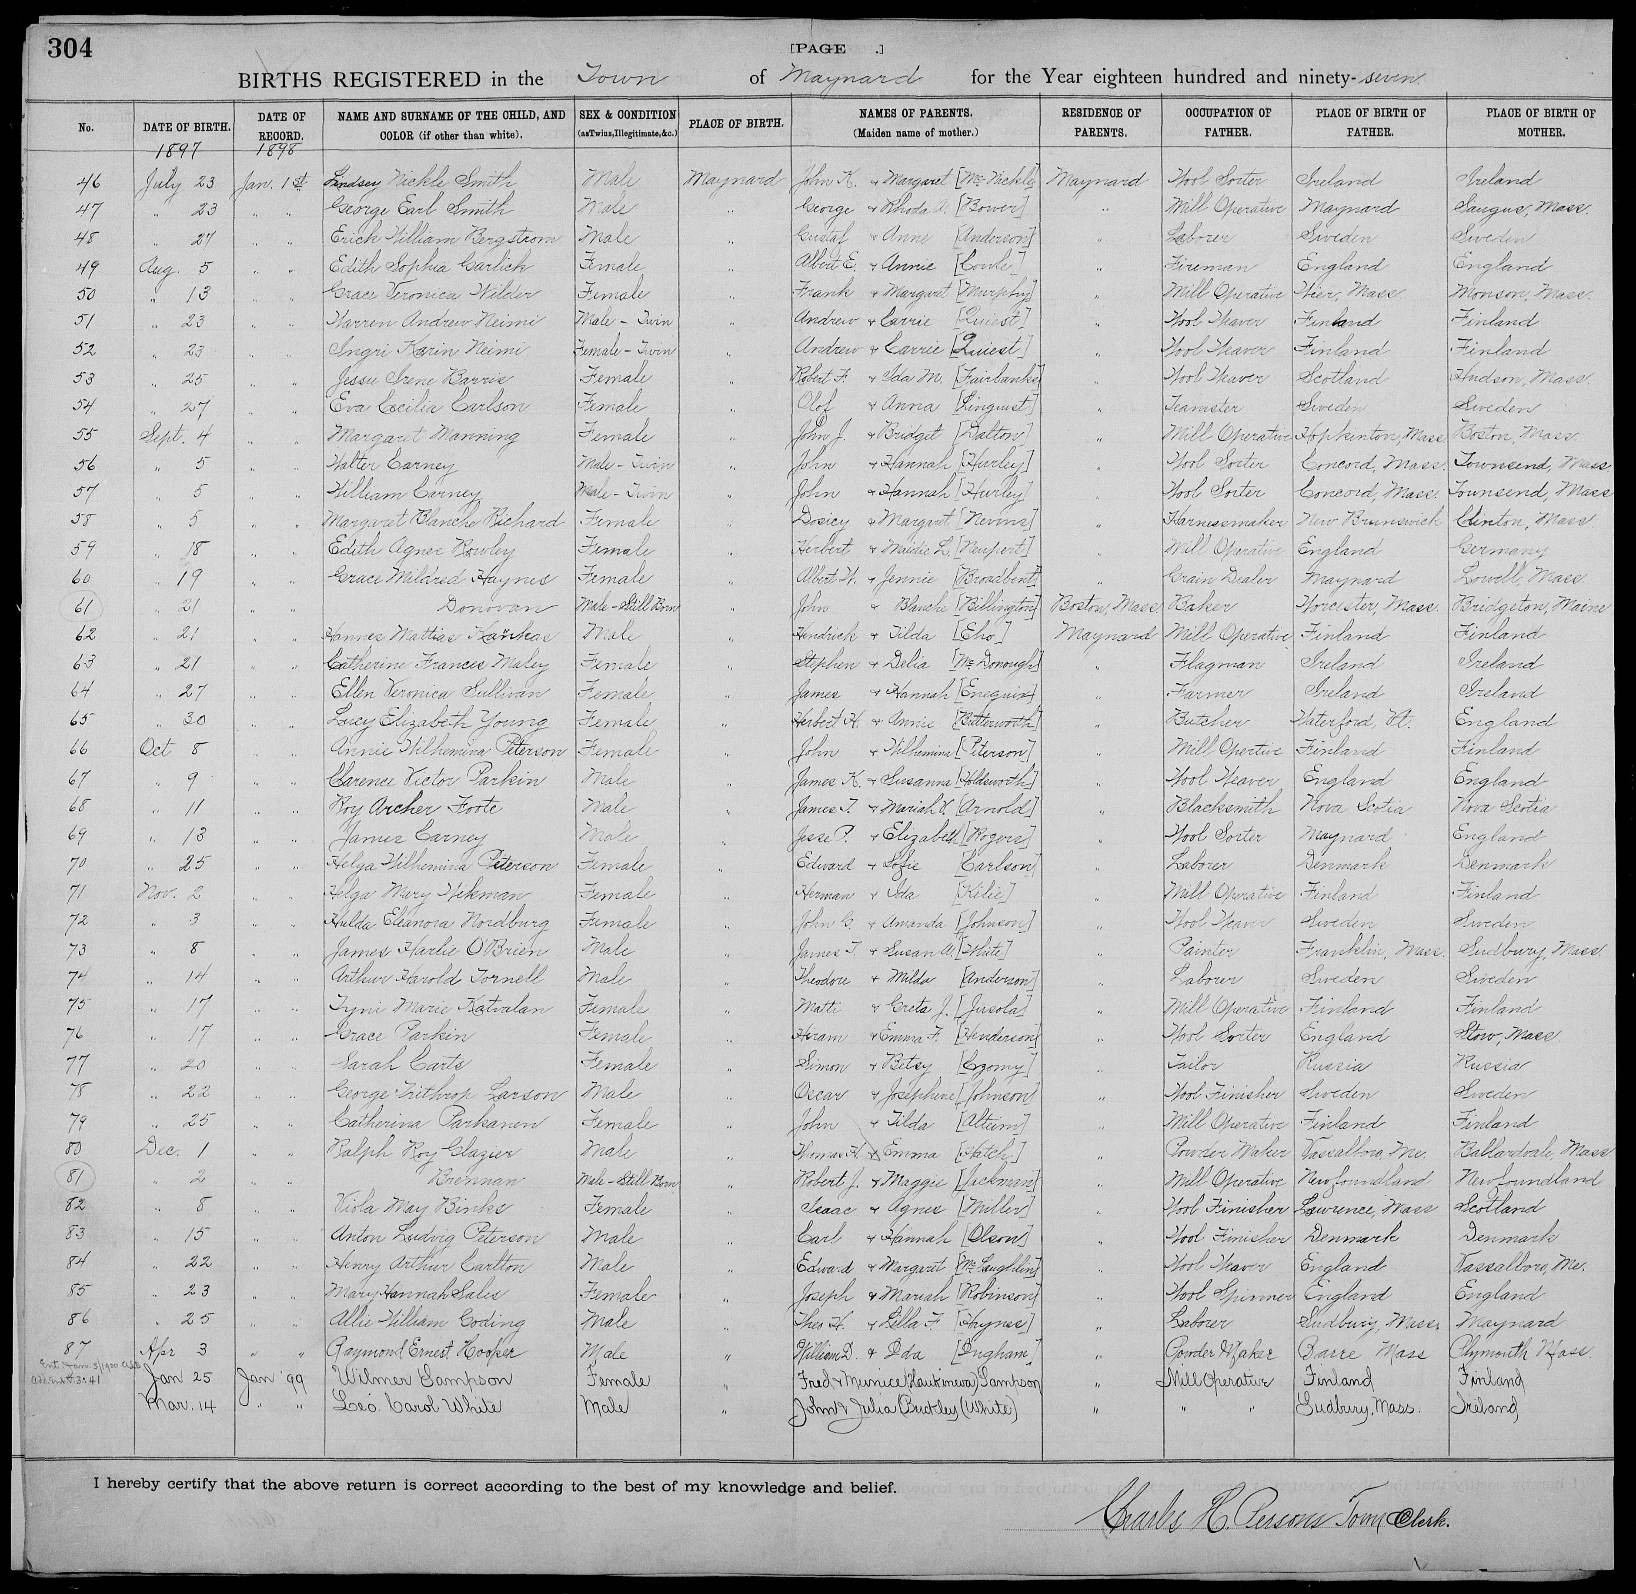 304
[PAGE .]
BIRTHS REGISTERED in the Town of Maynard for the Year eighteen hundred and ninety-seven.
No. DATE OF BIRTH. DATE OF RECORD. NAME AND SURNAME OF THE CHILD, AND COLOR (if other than white). SEX & CONDITION (as Twins, Illegitimate, &c.) PLACE OF BIRTH. NAMES OF PARENTS. (Maiden name of mother.) RESIDENCE OF PARENTS. OCCUPATION OF FATHER. PLACE OF BIRTH OF FATHER. PLACE OF BIRTH OF MOTHER.
1897 1898
46 July 23 Jan. 1st Lindsey Nickle Smith Male Maynard John K. & Margaret [McNickle] Maynard Wool Sorter Ireland Ireland
47 " 23 " " George Earl Smith Male " George & Rhoda A. [Bower] " Mill Operative Maynard Saugus, Mass.
48 " 27 " " Erick William Bergstrom Male " Gustaf & Anne [Anderson] " Laborer Sweden Sweden
49 Aug. 5 " " Edith Sophia Garlick Female " Albert E. & Annie " Fireman England England
50 " 13 " " Grace Veronica Wilder Female " Frank & Margaret [Murphy] " Mill Operative Mass. Monson, Mass.
51 " 23 " " Warren Andrew Neimi Male - Twin " Andrew & Carrie [Quiest] " Wool Weaver Finland Finland
52 " 23 " " Ingri Karin Neimi Female - Twin " Andrew & Carrie [Quiest] " Wool Weaver Finland Finland
53 " 25 " " Jessie Irene Barris Female " Robert F. & Ida M. [Fairbanks] " Wool Weaver Scotland Hudson, Mass.
54 " 27 " " Eva Cecilia Carlson Female " Olof & Anna [Linquist] " Teamster Sweden Sweden
55 Sept. 4 " " Margaret Manning Female " John J. & Bridget [Dalton] " Mill Operative Hopkinton, Mass Boston, Mass.
56 " 5 " " Walter Carney Male - Twin " John & Hannah [Hurley] " Wool Sorter Concord, Mass. Townsend, Mass
57 " 5 " " William Carney Male - Twin " John & Hannah [Hurley] " Wool Sorter Concord, Mass. Townsend, Mass
58 " 5 " " Margaret Blanche Richard Female " Dosicy & Margaret [Nevins] " Harnessmaker New Brunswick Clinton, Mass
59 " 18 " " Edith Agnes Rowley Female " Herbert & L. [Neupert] " Mill Operative England Germany
60 " 19 " " Grace Mildred Haynes Female " Albert W. & Jennie [Broadbent] " Grain Dealer Maynard Lowell, Mass.
61 " 21 " " Donovan Male - Still Born " John & Blanche [Billington] Boston, Mass Baker Worcester, Mass. Bridgeton, Maine
62 " 21 " " Hannes Mattias Karikas Male " Hendrick & Tilda [Eho] Maynard Mill Operative Finland Finland
63 " 21 " " Catherine Frances Maley Female " Stephen & Delia [McDonough] " Flagman Ireland Ireland
64 " 27 " " Ellen Veronica Sullivan Female " James & Hannah [Eneguis] " Farmer Ireland Ireland
65 " 30 " " Lucy Elizabeth Young Female " Herbert H. & Annie [Butterworth] " Butcher Waterford, Vt. England
66 Oct 8 " " Annie Wilhemina Peterson Female " John & Wilhemina [Peterson] " Mill Opertive Finland Finland
67 " 9 " " Clarence Victor Parkin Male " James K. & Susanna [Holdsworth] " Wool Weaver England England
68 " 11 " " Roy Archer Foote Male " James T. & Mariah V. [Arnold] " Blacksmith Nova Scotia Nova Scotia
69 " 13 " " James Carney Male " Jesse P. & Elizabeth [Rogers] " Wool Sorter Maynard England
70 " 25 " " Helga Wilhemina Peterson Female " Edward & Sofie [Carlson] " Laborer Denmark Denmark
71 Nov. 2 " " Helga Mary Wekman Female " Herman & Ida [Kilie] " Mill Operative Finland Finland
72 " 3 " " Hulda Eleanora Nordburg Female " John G. & Amanda [Johnson] " Wool Weaver Sweden Sweden
73 " 8 " " James Harlie O'Brien Male " James T. & Susan A. [White] " Painter Franklin, Mass. Sudbury, Mass.
74 " 14 " " Arthur Harold Tornell Male " Theodore & Milda [Anderson] " Laborer Sweden Sweden
75 " 17 " " Tyni Marie Katvalan Female " Matti & Greta J. [Jusola] " Mill Operative Finland Finland
76 " 17 " " Grace Parkin Female " Hiram & Emma F. [Henderson] " Wool Sorter England Stow, Mass
77 " 20 " " Sarah Carts Female " Simon & Betsy [Czomy] " Tailor Russia Russia
78 " 22 " " George Withrop Larson Male " Oscar & Josephine [Johnson] " Wool Finisher Sweden Sweden
79 " 25 " " Catherina Parkanen Female " John & Tilda [Alteim] " Mill Operative Finland Finland
80 Dec. 1 " " Ralph Roy Glazier Male " Thomas H. & Emma [Hatch] " Powder Maker Vassalboro, Me. Ballardvale, Mass
81 " 2 " " Brennan Male - Still Born " Robert J. & Maggie [Jackman] " Mill Operative Newfoundland Newfoundland
82 " 8 " " Viola May Binks Female " Isaac & Agnes [Miller] " Wool Finisher Lawrence, Mass Scotland
83 " 15 " " Anton Ludvig Peterson Male " Carl & Hannah [Olson] " Wool Finisher Denmark Denmark
84 " 22 " " Henry Arthur Carlton Male " Edward & Margaret [McLaughlin] " Wool Weaver England Vassalboro, Me.
85 " 23 " " Mary Hannah Sales Female " Joseph & Mariah [Robinson] " Wool Spinner England England
86 " 25 " " Allie William Coding Male " Theo H. & Lella F. [Haynes] " Laborer Sudbury, Mass Maynard
87 Apr 3 " " Raymond Ernest Hooper Male " William D. & Ida [Ingham] " Powder Maker Barre Mass Plymouth Mass
Jan 25 Jan '99 Wilmer Sampson Female " Fred & Eunice (Haukineva) Sampson " Mill Operative Finland Finland
Mar. 14 " " Leo Carol White Male " John & Julia (Buckley) (White) " " " Sudbury, Mass. Ireland
I hereby certify that the above return is correct according to the best of my knowledge and belief.
Charles H. Persons Town Clerk.